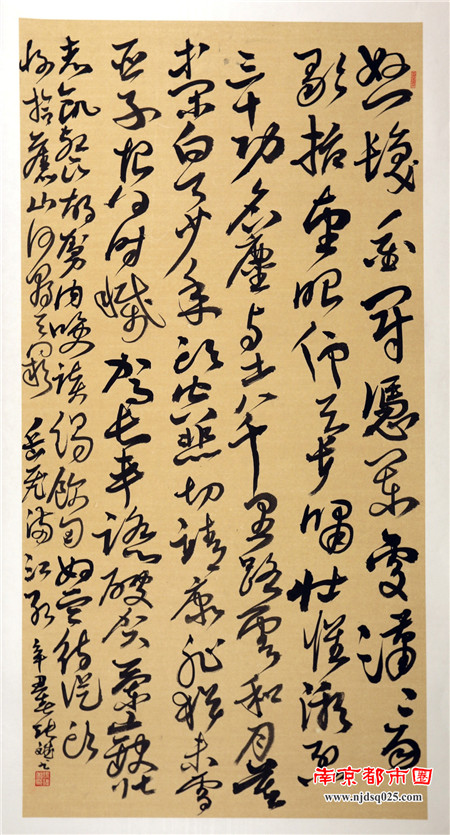 怒髮衝冠憑闌處潇〻雨
歇抬望眼仰天長嘯壯懷激烈
三十功名塵与土八千里路雲和月莫
等閑白了少年頭空悲切靖康恥猶未雪
臣子恨何時滅駕長車踏破賀蘭山缺壯
志飢餐胡虜肉笑談渴飲匈奴血待從頭
收拾舊山河朝天闕 岳飛滿江紅 辛丑
南京都市圈
www.njdsq025.com